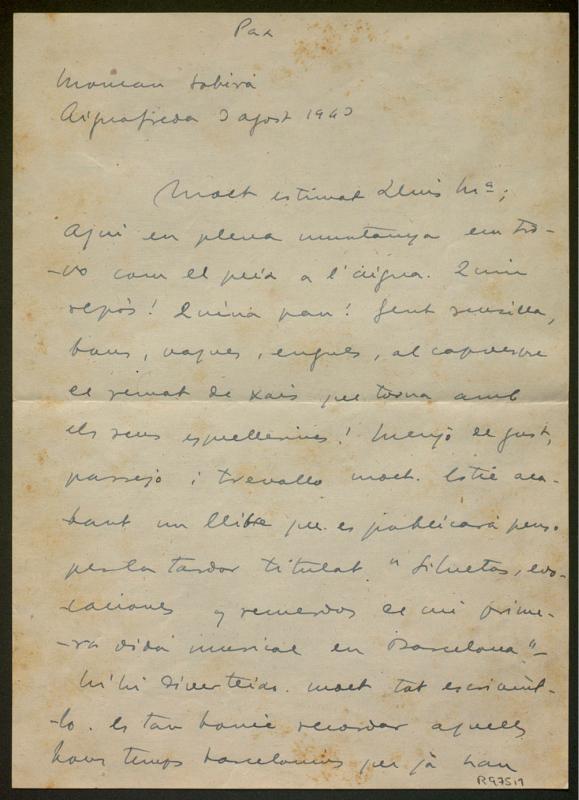 Pax
Aiguafreda 3 agost 1943
Molt estimat Lluis Mª;
Aquí en plena muntanya em tro-
-vo com el peix a l'aigua. Quin
repòs! Quina pau! Gent senzilla,
bous, vaques, eugues, al capvespre
el remat de xais que torna amb
els seus esquellerines! Menjo de gust,
passejo i trevallo molt. Estic aca-
bant un llibre que es publicará penso
per la tardor titulat "Siluetas, evo-
caciones y recuerdos de mi prime-
-ra vida musical en Barcelona."-
M'hi diverteixo molt tot escrivint-
-lo. Es tan bonic recordar aquells
bons temps barcelonins que ja han
R.97519